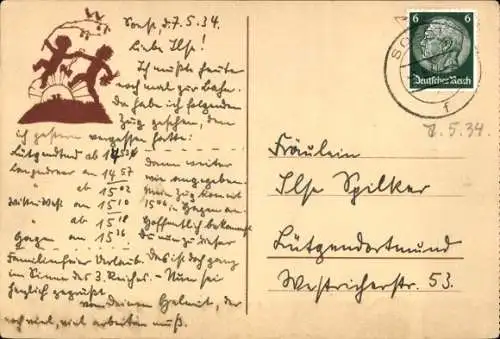 Soest, d. 7.5.34.
Liebe Ilse!
Ich mußte heute
noch mal zur Bahn.
Da habe ich folgenden
Zug gesehen, den
ich gestern vergessen hatte:
Lütgendtmd ab 14
Langendreer an 14 57
" ab 15 02
Witten-West an 15 10
" ab 15 18
Hagen an 15 36
Dann weiter
wie angegeben.
Mein Zug kommt
15 in Hagen an.
Hoffentlich bekommst
Du nun zu dieser
Familienfeier Urlaub. Das ist doch ganz
im Sinne des 3. Reiches. - Nun sei
herzlich gegrüßt
von Deinem Helmut, der
noch viel, viel arbeiten muß.
6 6
Deutsches Reich
7.5.34.
Fräulein
Ilse Spilker
Lütgendortmund
Westricherstr. 53.